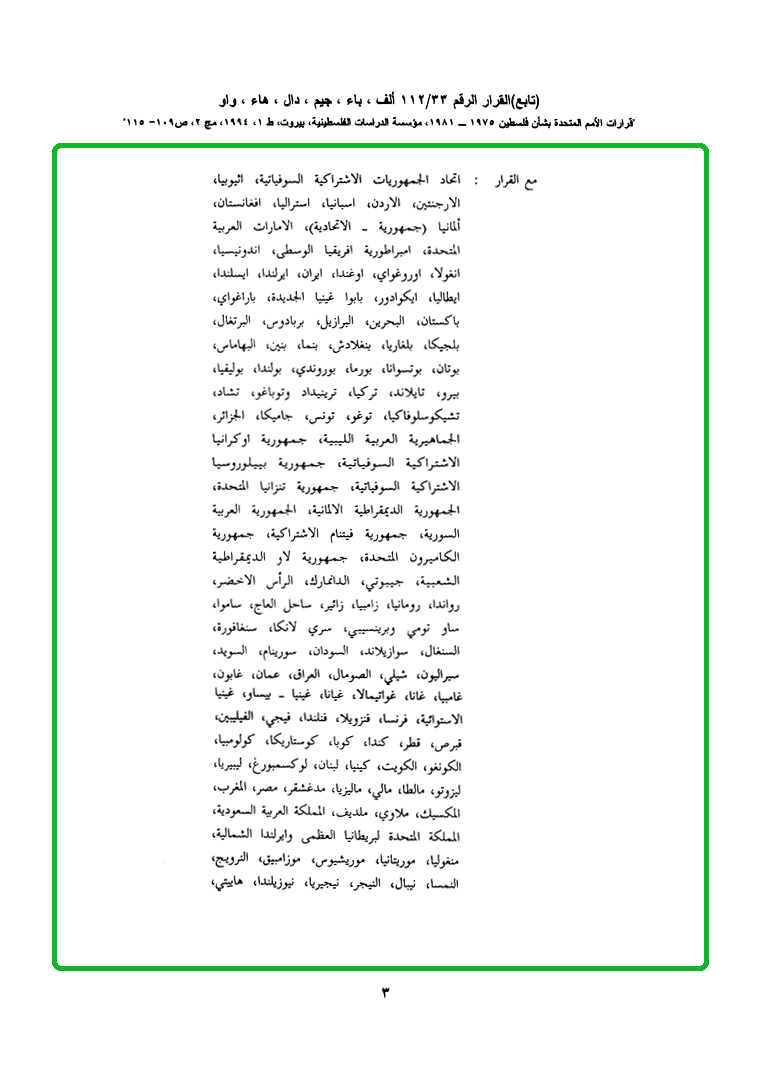 (تابع)القرار الرقم ١١٢/٣٣ ألف ، باء ، جيم ، دال ، هاء ، واو
"قرارات الأمم المتحدة بشأن فلسطين ١٩٧٥ ــ ١٩٨١، مؤسسة الدراسات الفلسطينية، بيروت، ط ١، ١٩٩٤، مج ٢، ص١٠٩- ١١٥"
مع القرار : اتحاد الجمهوريات الاشتراكية السوفياتية، اثيوبيا،
الارجنتين، الاردن، اسبانيا، استراليا، افغانستان،
ألمانيا (جمهورية ـ الاتحادية)، الامارات العربية
المتحدة، امبراطورية افريقيا الوسطى، اندونيسيا،
انغولا، اوروغواي، اوغندا، ايران، ايرلندا، ايسلندا،
ايطاليا، ايكوادور، بابوا غينيا الجديدة، باراغواي،
باكستان، البحرين، البرازيل، بربادوس، البرتغال،
بلجيكا، بلغاريا، بنغلادش، بنما، بنين، البهاماس،
بوتان، بوتسوانا، بورما، بوروندي، بولندا، بوليفيا،
بيرو، تايلاند، تركيا، ترينيداد وتوباغو، تشاد،
تشيكوسلوفاكيا، توغو، تونس، جاميكا، الجزائر،
الجماهيرية العربية الليبية، جمهورية اوكرانيا
الاشتراكية السوفياتية، جمهورية بييلوروسيا
الاشتراكية السوفياتية، جمهورية تنزانيا المتحدة،
الجمهورية الديمقراطية الالمانية، الجمهورية العربية
السورية، جمهورية فيتنام الاشتراكية، جمهورية
الكاميرون المتحدة، جمهورية لاو الديمقراطية
الشعبية، جيبوتي، الدانمارك، الرأس الاخضر،
رواندا، رومانيا، زامبيا، زائير، ساحل العاج، ساموا،
ساو تومي وبرينسيبي، سري لانكا، سنغافورة،
السنغال، سوازيلاند، السودان، سورينام، السويد،
سيراليون، شيلي، الصومال، العراق، عمان، غابون،
غامبيا، غانا، غواتيمالا، غيانا، غينيا ـ بيساو، غينيا
الاستوائية، فرنسا، فنزويلا، فنلندا، فيجي، الفيليبين،
قبرص، قطر، كندا، كوبا، كوستاريكا، كولومبيا،
الكونغو، الكويت، كينيا، لبنان، لوكسمبورغ، ليبيريا،
ليزوتو، مالطا، مالي، ماليزيا، مدغشقر، مصر، المغرب،
المكسيك، ملاوي، ملديف، المملكة العربية السعودية،
المملكة المتحدة لبريطانيا العظمى وايرلندا الشمالية،
منغوليا، موريتانيا، موريشيوس، موزامبيق، النرويج،
النمسا، نيبال، النيجر، نيجيريا، نيوزيلندا، هاييتي،
٣